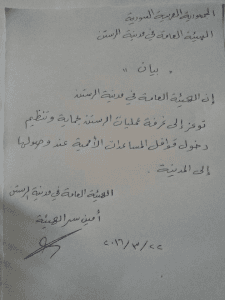 الجمهورية العربية السورية
الهيئة العامة في مدينة الرستن
" بيان "
إن الهيئة العامة في مدينة الرستن
توعز إلى غرفة عمليات الرستن حماية وتنظيم
دخول قوافل المساعدات الأممية عند وصولها
إلى المدينة .
الهيئة العامة في مدينة الرستن
أمين سر الهيئة
٢٠١٦/٣/٢٢